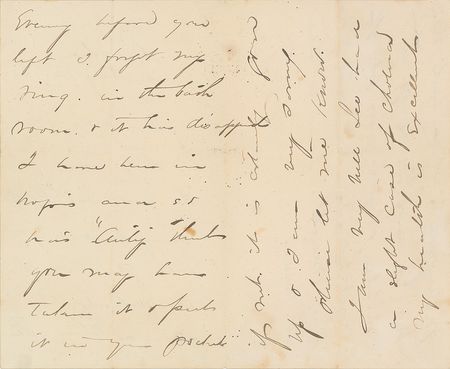 Evening before you
left I forgot my
ring. in the bath
room. & it has disappeared
I have been in
hopes and so
has "Aunty" thinks
you may have
taken it & put
it in your pocket
if not it is gone
up & I am my
Please let me know.
I am very well Lee had
a slight case of cholera
my health is Excellent